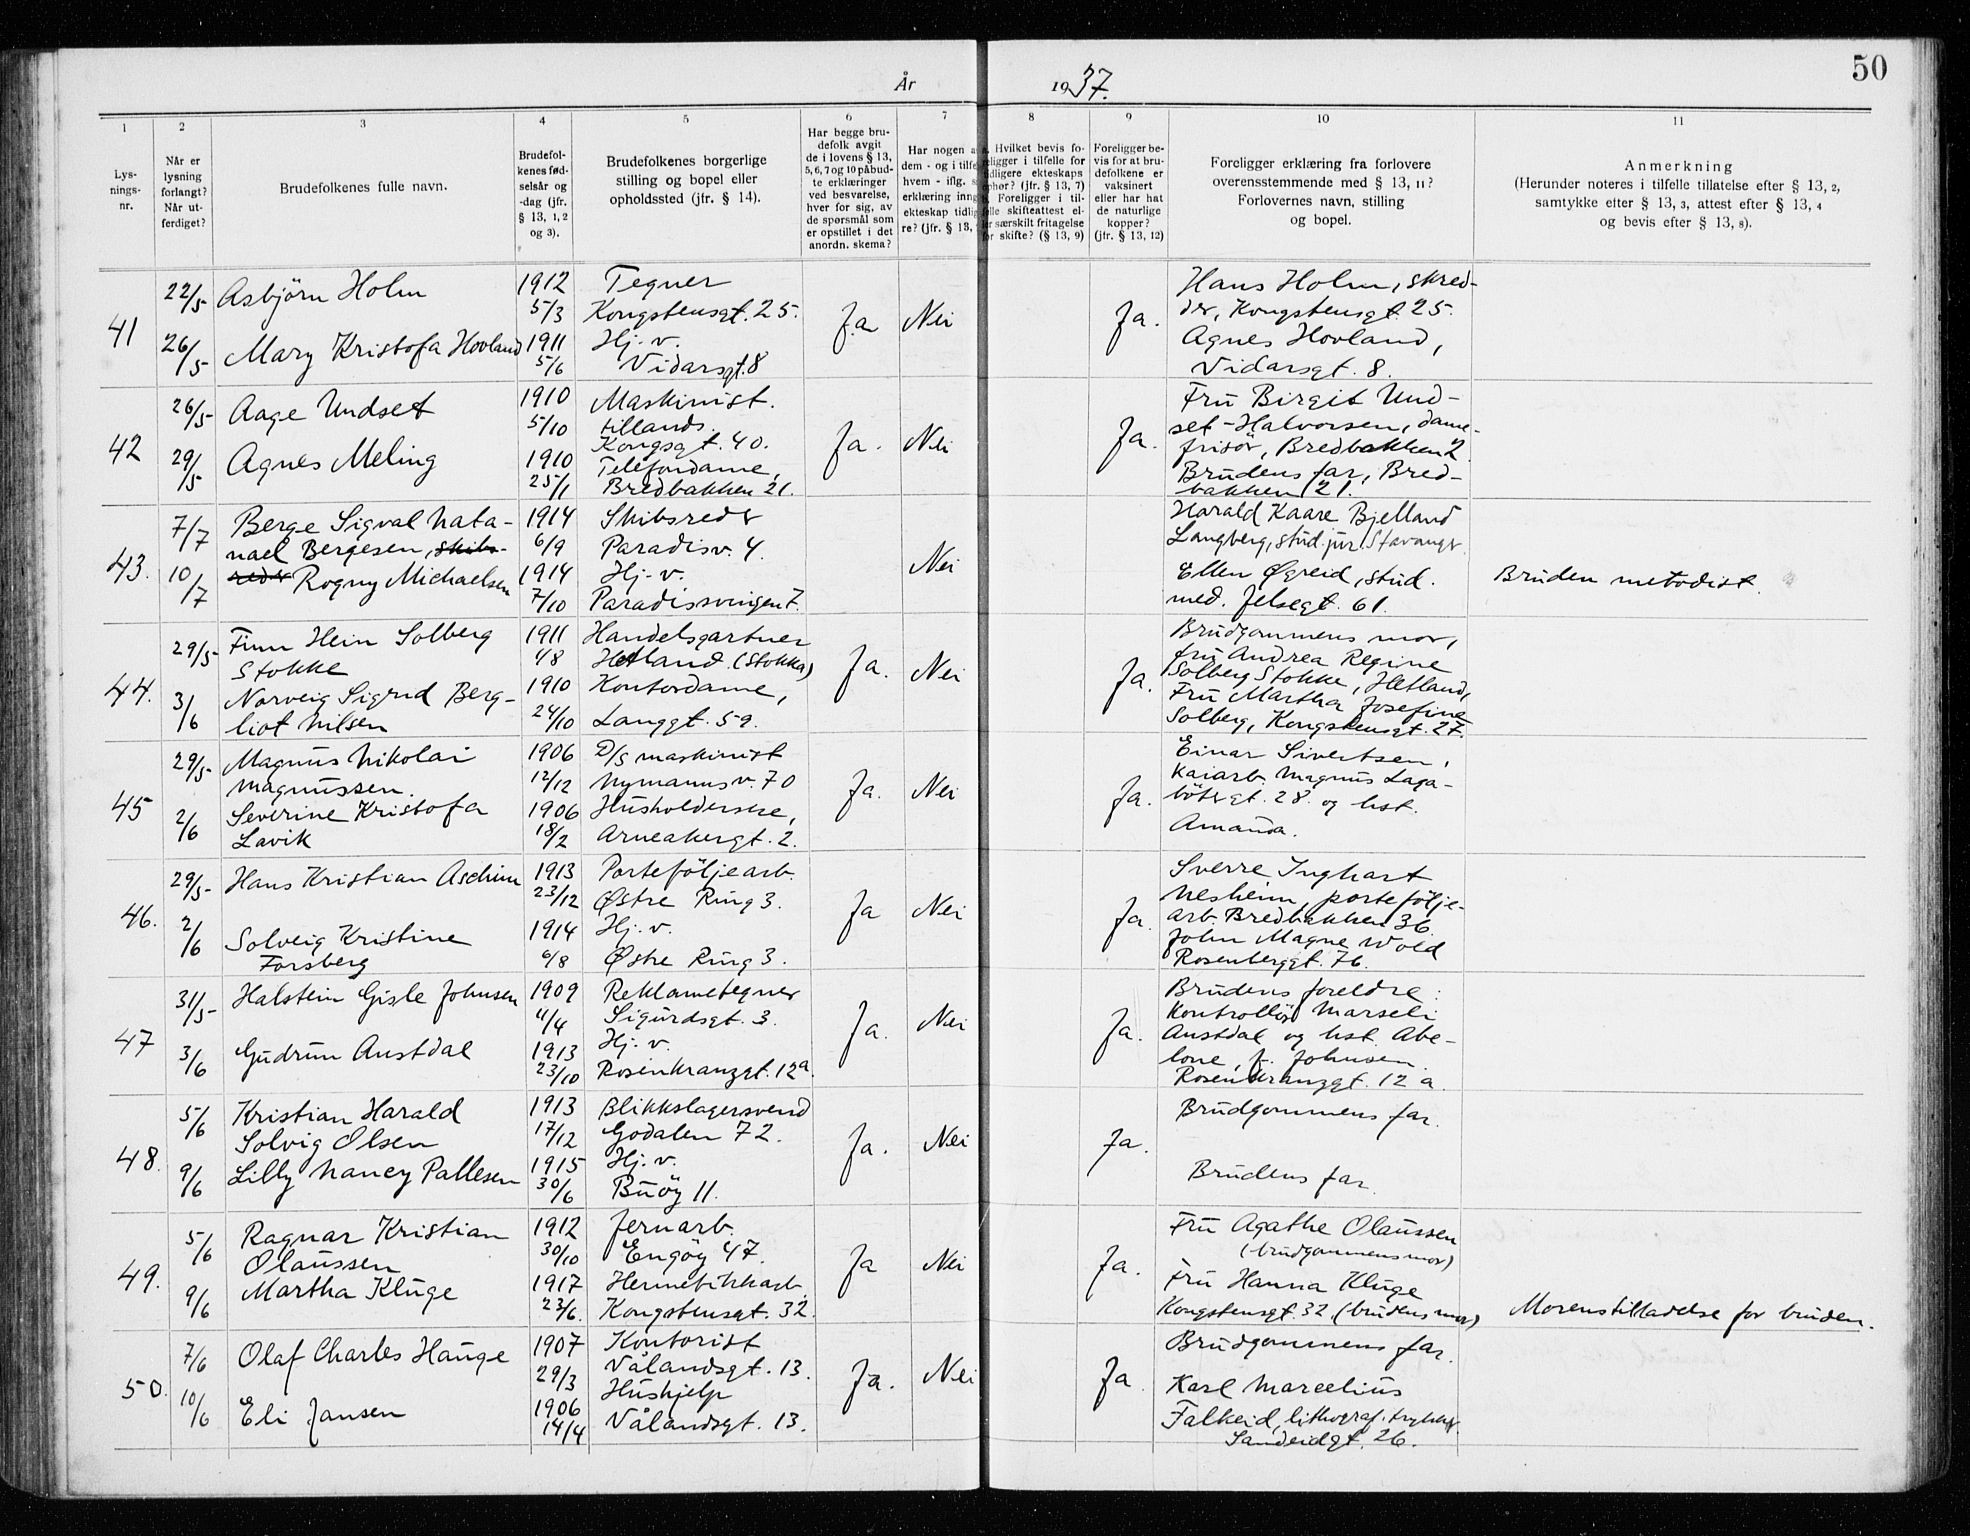 50
År 1937.
1 2 3 4 5 6 7 8 9 10 11
Lys-
nings-
nr.
Når er
lysning
forlangt?
Når ut-
ferdiget?
Brudefolkenes fulle navn.
Brudefol-
kenes fød-
selsår og
-dag (jfr.
§ 13, 1, 2
og 3).
Brudefolkenes borgerlige
stilling og bopel eller
opholdssted (jfr. § 14).
Har begge bru-
defolk avgit
de i lovens § 13,
5, 6, 7 og 10 påbud-
te erklæringer
ved besvarelse,
hver for sig, av
de spørsmål som
er opstillet i det
anordn. skema?
Har nogen a
dem - og i tilfe
hvem - iflg. s
erklæring inng
ekteskap tidlig
re? (jfr. § 13,
Hvilket bevis fo-
religger i tilfelle for
tidligere ekteskaps
ophør? (jfr. § 13, 7)
Foreligger i til-
felle skifteattest el-
ler særskilt fritagelse
for skifte? (§ 13, 9)
Foreligger be-
vis for at bru-
defolkene er
vaksinert
eller har hat
de naturlige
kopper?
(jfr. § 13, 12)
Foreligger erklæring fra forlovere
overensstemmende med § 13, 11?
Forlovernes navn, stilling
og bopel.
Anmerkning
(Herunder noteres i tilfelle tillatelse efter § 13, 2,
samtykke efter § 13, 3, attest efter § 13, 4
og bevis efter § 13, 8).
41
22/5
26/5
Asbjörn Holm
Mary Kristofa Hovland
1912
5/3
1911
5/6
Tegner
Kongstensgt. 25.
Hj.-v.
Vidarsgt. 8
Ja
Nei
Ja.
Hans Holm, skred-
der, Kongstensgt. 25.
Agnes Hovland,
Vidarsgt. 8.
42
26/5
29/5
Aage Undset
Agnes Meling
1910
5/10
1910
25/1
Maskinist.
tillands.
Kongsgt. 40.
Telefondame,
Bredbakken 21.
Ja.
Nei
Ja.
Fru Birgit Und-
set-Halvorsen, dame-
frisör, Bredbakken 2
Brudens far, Bred-
bakken 21.
43.
7/7
10/7
Berge Sigval Nata-
nael Bergesen, skibs-
reder Rogny Michaelsen
1914
6/9
1914
7/10
Skibsreder
Paradisv. 4.
Hj.-v.
Paradissvingen 7.
Nei
Harald Kaare Bjelland
Langberg, stud. jur. Stavanger
Ellen Øgreid, stud.
med. Jelsegt. 61.
Bruden metodist.
44.
29/5
3/6
Finn Hein Solberg
Stokke
Norveig Sigrid Berg-
liot Nilsen
1911
4/8
1910
24/10
Handelsgartner
Hetland (Stokka)
Kontordame,
Langgt. 59.
Ja.
Nei
Ja.
Brudgommens mor,
fru Andrea Regine
Solberg Stokke, Hetland,
Fru Martha Josefine
Solberg, Kongstensgt. 27.
45
29/5
2/6
Magnus Nikolai
Magnussen.
Severine Kristofa
Lavik
1906
12/12
1906
18/2
D/S maskinist
Nymannsv. 70
Husholderske,
Arneakergt. 2.
Ja.
Nei
Ja.
Einar Sivertsen,
Kaiarb. Magnus Laga-
bötersgt. 28. og hst.
Amanda.
46.
29/5
2/6
Hans Kristian Aschim
Solveig Kristine
Forsberg
1913
23/12
1914
6/8
Porteföljearb.
Østre Ring 3.
Hj.-v.
Østre Ring 3.
Ja
Nei
Ja.
Sverre Inghart
Nesheim, portefölje-
arb. Bredbakken 36.
John Magne Wold
Rosenberggt. 76.
47
31/5
3/6
Halstein Gisle Johnsen
Gudrun Austdal
1909
11/4
1913
23/10
Reklametegner
Sigurdsgt. 3.
Hj.-v.
Rosenkranzgt. 12a.
Ja.
Nei
Ja.
Brudens foreldre:
Kontrollör Marseli
Austdal og hst. Abe-
lone, f. Johnsen.
Rosenkranzgt. 12 a.
48.
5/6
9/6
Kristian Harald
Solvig Olsen
Lilly Nancy Pallesen
1913
17/12
1915
30/6
Blikkslagersvend
Godalen 72.
Hj.-v.
Buöy 11.
Ja.
Nei
Ja.
Brudgommens far.
Brudens far.
49.
5/6
9/6
Ragnar Kristian
Olaussen
Martha Kluge
1912
30/10
1917
23/6.
Jernarb.
Engöy 47.
Hermetikkarb.
Kongstensgt. 32.
Ja
Nei
Ja.
Fru Agathe Olaussen
(brudgommens mor)
Fru Hanna Kluge
Kongstensgt. 32. (brudens mor)
Morens tilladelse for bruden.
50.
7/6
10/6
Olaf Charles Hauge
Eli Jansen
1907
29/3
1906
14/4
Kontorist
Vålandsgt. 13.
Hushjelp
Vålandsgt. 13.
Ja.
Nei
Ja
Brudgommens far.
Karl Marcelius
Falkeid, lithograf. trykker
Sandeidgt. 26.